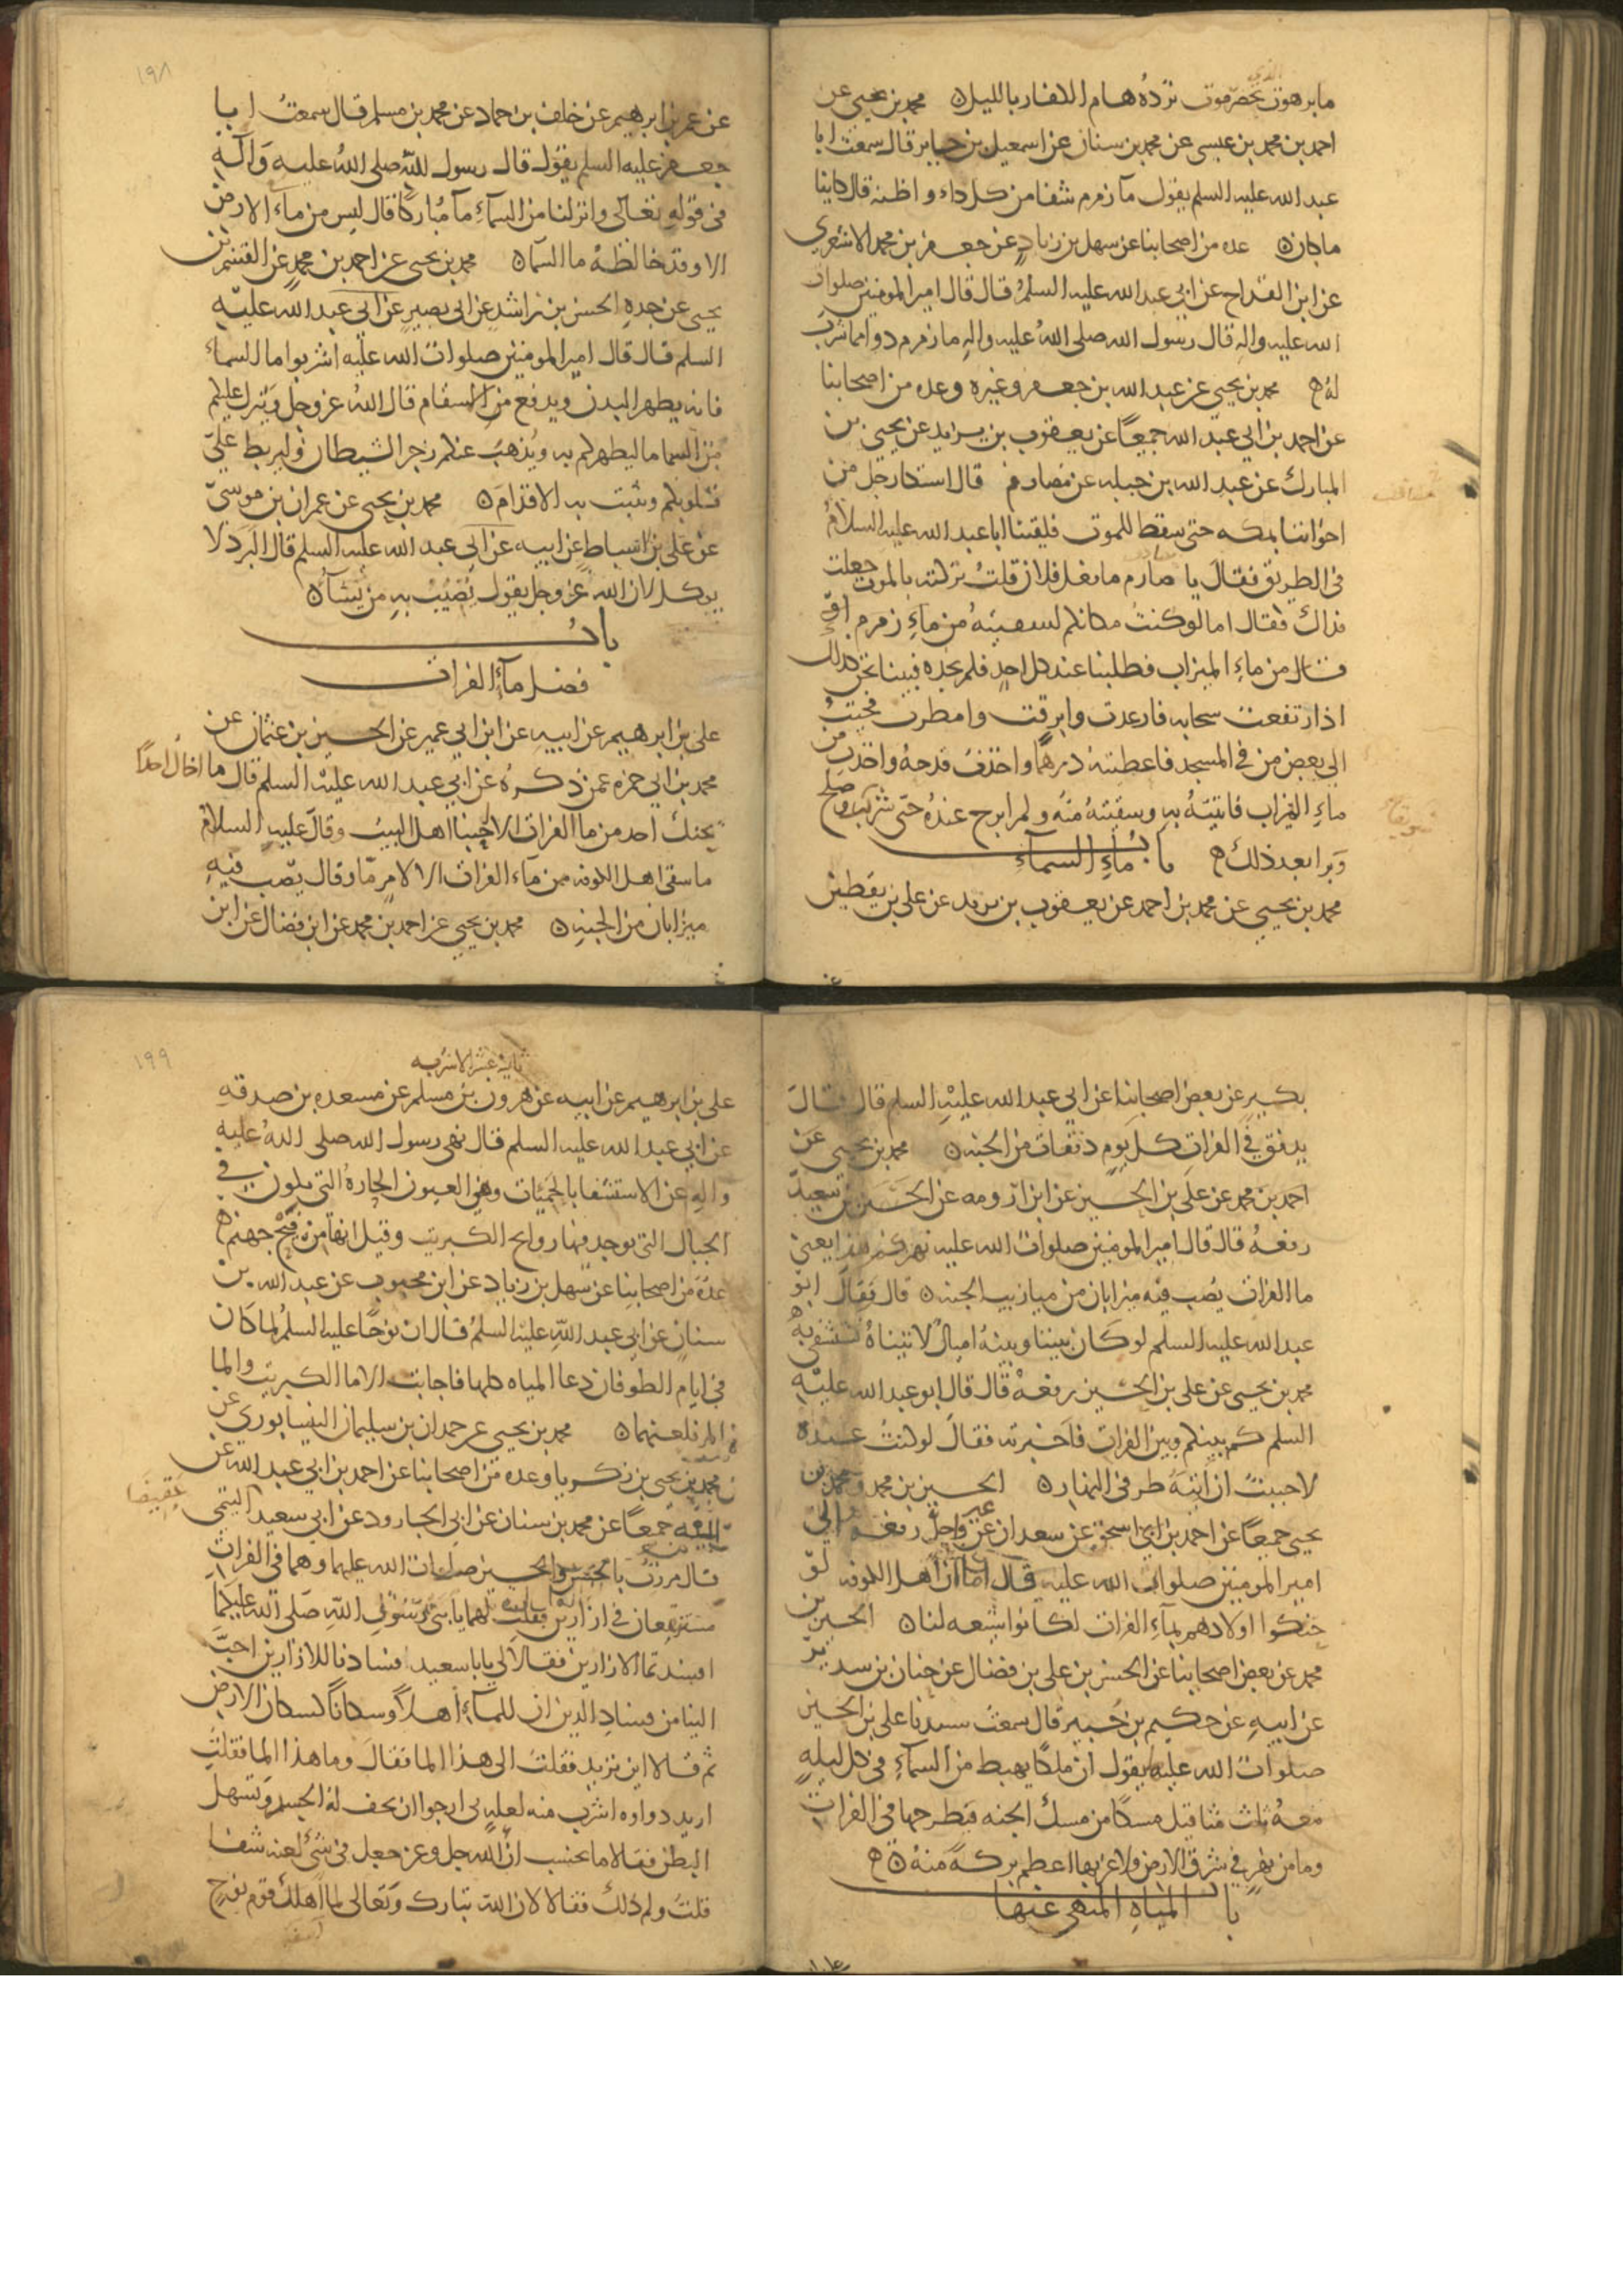 ما برهوت بحضرموت ترده هام الكفار بالليل ه محمد بن يحيى عن
الذي
احمد بن محمد بن عيسى عن محمد بن سنان عن اسمعيل بن جابر قال سمعت ابا
عبد الله عليه السلم يقول ماء زمزم شفا من كل داء واظنه قال كاينا
ما كان ه عده من اصحابنا عن سهل بن زياد عن جعفر بن محمد الاشعري
عن ابن القداح عن ابي عبد الله عليه السلم قال قال امير المومنين صلوات
الله عليه واله قال رسول الله صلى الله عليه واله ما زمزم دوا مما شرب
له ه محمد بن يحيى عن عبد الله بن جعفر وغيره وعده من اصحابنا
عن احمد بن ابي عبد الله جميعا عن يعقوب بن يزيد عن يحيى بن
المبارك عن عبد الله بن جبله عن مصارم قال اشتكا رجل من
اخواننا بمكه حتى سقط للموت فلقينا ابا عبد الله عليه السلام
في الطريق فقال يا صارم ما فعل فلان قلت تركته بالموت جعلت
فداك فقال اما لو كنت مكانكم لسقيته من ماء زمزم او
قال من ماء الميزاب فطلبنا عند كل احد فلم نجده فبينا نحن كذلك
اذ ارتفعت سحابه فارعدت وابرقت وامطرت فجيت
الى بعض من في المسجد فاعطيته درهما واخذت قدحه واخذت من
ماء الميزاب فاتيته به وسقيته منه ولم ابرح عنده حتى شرب وصلح
وبرا بعد ذلك ه باب ماء السماء
محمد بن يحيى عن محمد بن احمد عن يعقوب بن يزيد عن علي بن يقطين
١٩٨
عن عمر بن ابرهيم عن خلف بن حماد عن محمد بن مسلم قال سمعت ابا
جعفر عليه السلم يقول قال رسول الله صلى الله عليه واله
في قوله تعالى وانزلنا من السماء ماء مباركا قال ليس من ماء الارض
الا وقد خالطه ما السما ه محمد بن يحيى عن احمد بن محمد عن القسم بن
يحيى عن جده الحسن بن راشد عن ابي بصير عن ابي عبد الله عليه
السلم قال قال امير المومنين صلوات الله عليه اشربوا ما السماء
فانه يطهر البدن ويدفع من الاسقام قال الله عز وجل وينزل عليكم
من السما ما ليطهركم به ويذهب عنكم رجز الشيطان وليربط على
قلوبكم ويثبت به الاقدام ه محمد بن يحيى عن عمران بن موسى
عن علي بن اسباط عن ابيه عن ابي عبد الله عليه السلم قال البرد لا
يوكل لان الله عز وجل يقول نصيب به من نشا ه
باب
فضل ماء الفرات
علي بن ابرهيم عن ابيه عن ابن ابي عمير عن الحسين بن عثمان عن
محمد بن ابي حمزه عمن ذكره عن ابي عبد الله عليه السلم قال ما اخال احدا
يحنك احد من ما الفرات الا احبنا اهل البيت وقال عليه السلام
ما سقى اهل الكوفه من ماء الفرات الا لامر ما وقال يصب فيه
ميزابان من الجنه ه محمد بن يحيى عن احمد بن محمد عن ابن فضال عن ابن
بكير عن بعض اصحابنا عن ابي عبد الله عليه السلم قال قال
يدفق في الفرات كل يوم دفقات من الجنه ه محمد بن يحيى عن
احمد بن محمد عن علي بن الحسين عن ابن ارومه عن الحسين بن سعيد
رفعه قال قال امير المومنين صلوات الله عليه نهركم هذا يعني
ما الفرات يصب فيه ميزابان من ميازيب الجنه ه قال فقال ابو
عبد الله عليه السلم لو كان بيننا وبينه اميال لاتيناه نستشفي به ه
محمد بن يحيى عن علي بن الحسين رفعه قال قال ابو عبد الله عليه
السلم كم بينكم وبين الفرات فاخبرته فقال لو كنت عنده
لاحببت ان آتيه طرفي النهار ه الحسين بن محمد ومحمد بن
يحيى جميعا عن احمد بن ابي اسحق عن سعدان عن غير واحد رفعوه الى
امير المومنين صلوات الله عليه قال اما ان اهل الكوفه لو
حنكوا اولادهم بماء الفرات لكانوا شيعه لنا ه الحسين بن
محمد عن بعض اصحابنا عن الحسن بن علي بن فضال عن حنان بن سدير
عن ابيه عن حكيم بن جبير قال سمعت سيدنا علي بن الحسين
صلوات الله عليه يقول ان ملكا يهبط من السماء في كل ليله
معه ثلث مثاقيل مسكا من مسك الجنه فيطرحها في الفرات
وما من نهر في شرق الارض ولا غربها اعظم بركة منه ه
باب المياه المنهى عنها
١٩٩
ثانية عشر الاشربه
علي بن ابرهيم عن ابيه عن هرون بن مسلم عن مسعده بن صدقه
عن ابي عبد الله عليه السلم قال نهى رسول الله صلى الله عليه
واله عن الاستشفا بالحميات وهي العيون الحاره التي تكون في
الجبال التي يوجد فيها روايح الكبريت وقيل انها من فيح جهنم ه
عده من اصحابنا عن سهل بن زياد عن ابن محبوب عن عبد الله بن
سنان عن ابي عبد الله عليه السلم قال ان نوحا عليه السلم لما كان
في ايام الطوفان دعا المياه كلها فاجابته الا ما الكبريت والما
المر فلعنهما ه محمد بن يحيى عن حمدان بن سليمان النيسابوري عن
محمد بن يحيى بن زكريا وعده من اصحابنا عن احمد بن ابي عبد الله عن
ابيه جميعا عن محمد بن سنان عن ابي الجارود عن ابي سعيد التيمي
قال مررت بالحسن والحسين صلوات الله عليهما وهما في الفرات
مستنقعان في ازارين فقلت لهما يا بني رسول الله صلى الله عليكما
افسدتما الازارين فقالا لي يابا سعيد فسادنا للازارين احب
الينا من فساد الدين ان للماء اهلا وسكانا كسكان الارض
ثم قالا اين تريد فقلت الى هذا الما فقال وما هذا الما فقلت
اريد دواوه اشرب منه لعله بي ارجوا ان يخف له الجسد وتسهل
البطن فقالا ما نحسب ان الله جل وعز جعل في شئ لعنه شفا
قلت ولم ذلك فقالا لان الله تبارك وتعالى لما اهلك قوم نوح